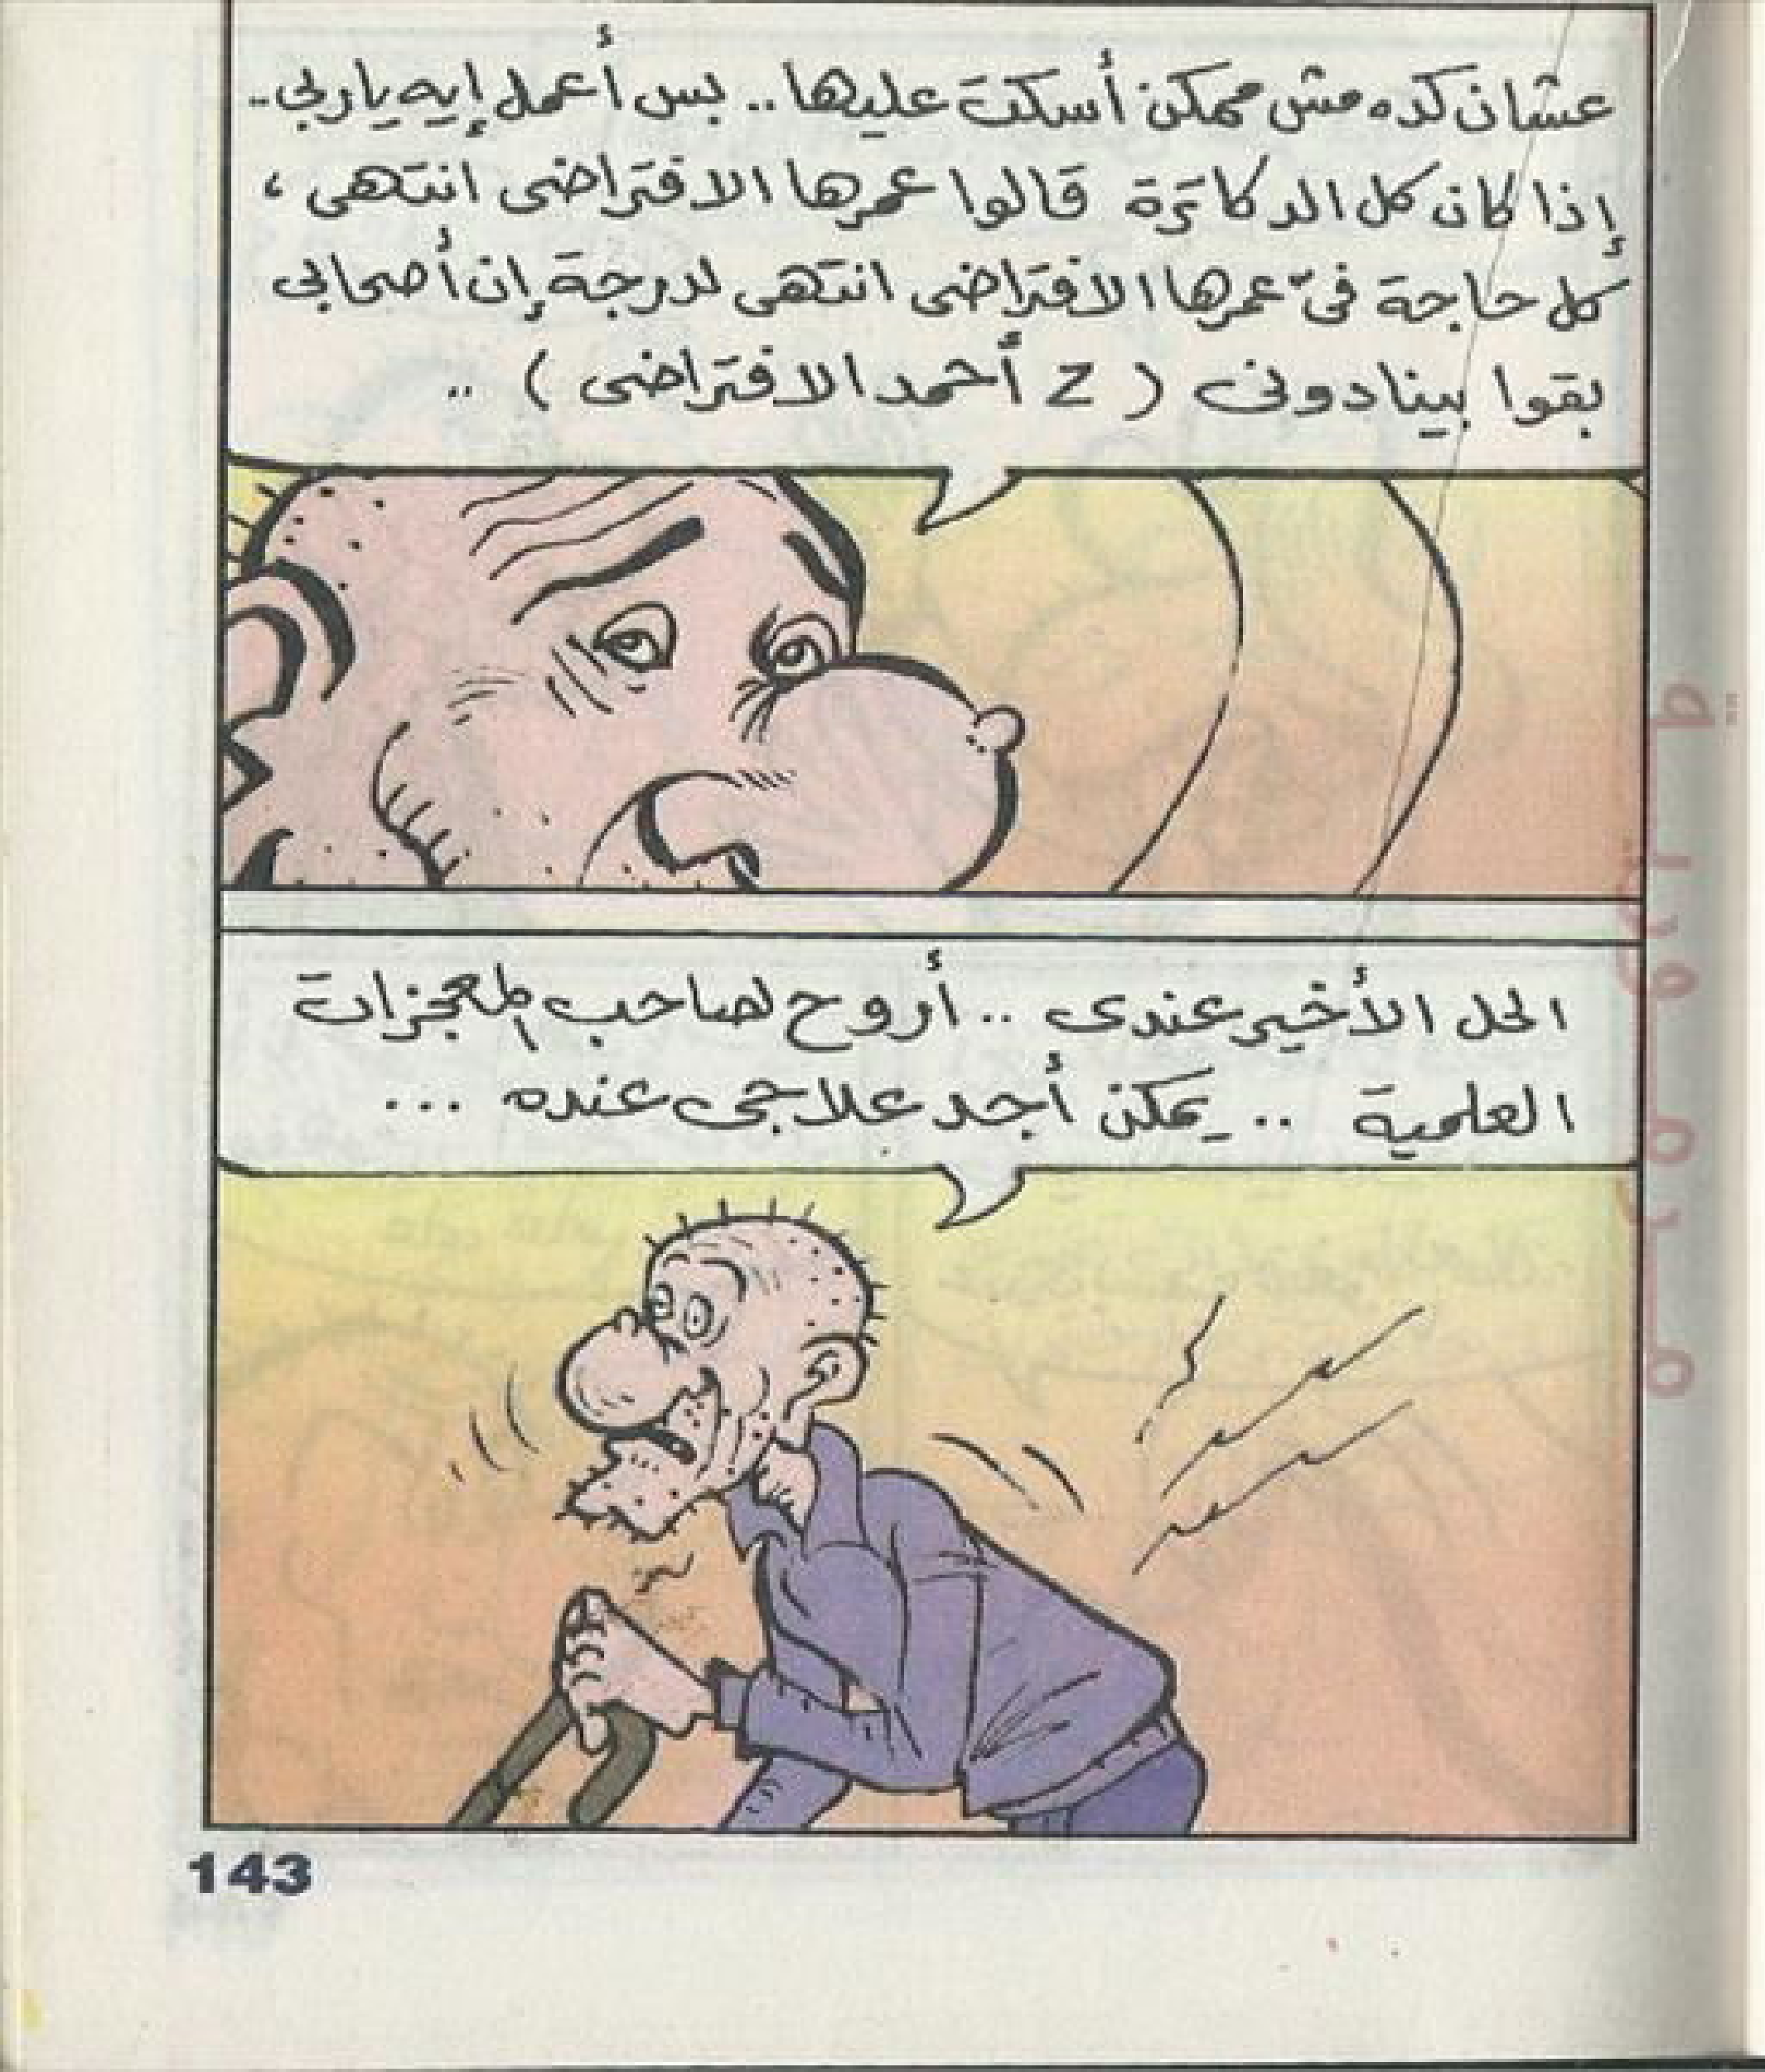 عشان كده مش ممكن أسكت عليها.. بس أعمل إيه ياربي..
إذا كان كل الدكاترة قالوا عمرها الافتراضى انتهى،
كل حاجة فىّ عمرها الافتراضى انتهى لدرجة إن أصحابى
بقوا بينادونى ( z أحمد الافتراضى ) ..
الحل الأخير عندى .. أروح لصاحب المعجزات
العلمية .. يمكن أجد علاجى عنده ...
143